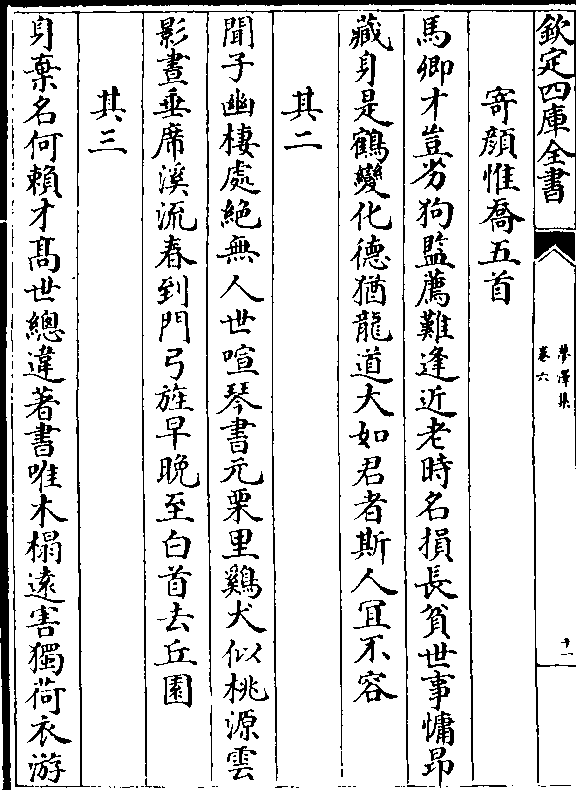 欽定四庫全書
夢澤集
卷六
十一
寄顔惟喬五首
馬卿才豈劣狗監薦難逢近老時名損長貧世事慵昂
藏身是鶴變化德猶龍道大如君者斯人冝不容
其二
聞子幽棲處絶無人世喧琴書元栗里鷄犬似桃源雲
影晝垂席溪流春到門弓旌早晚至白首去丘園
其三
身棄名何頼才髙世總違著書唯木榻逺害獨荷衣游